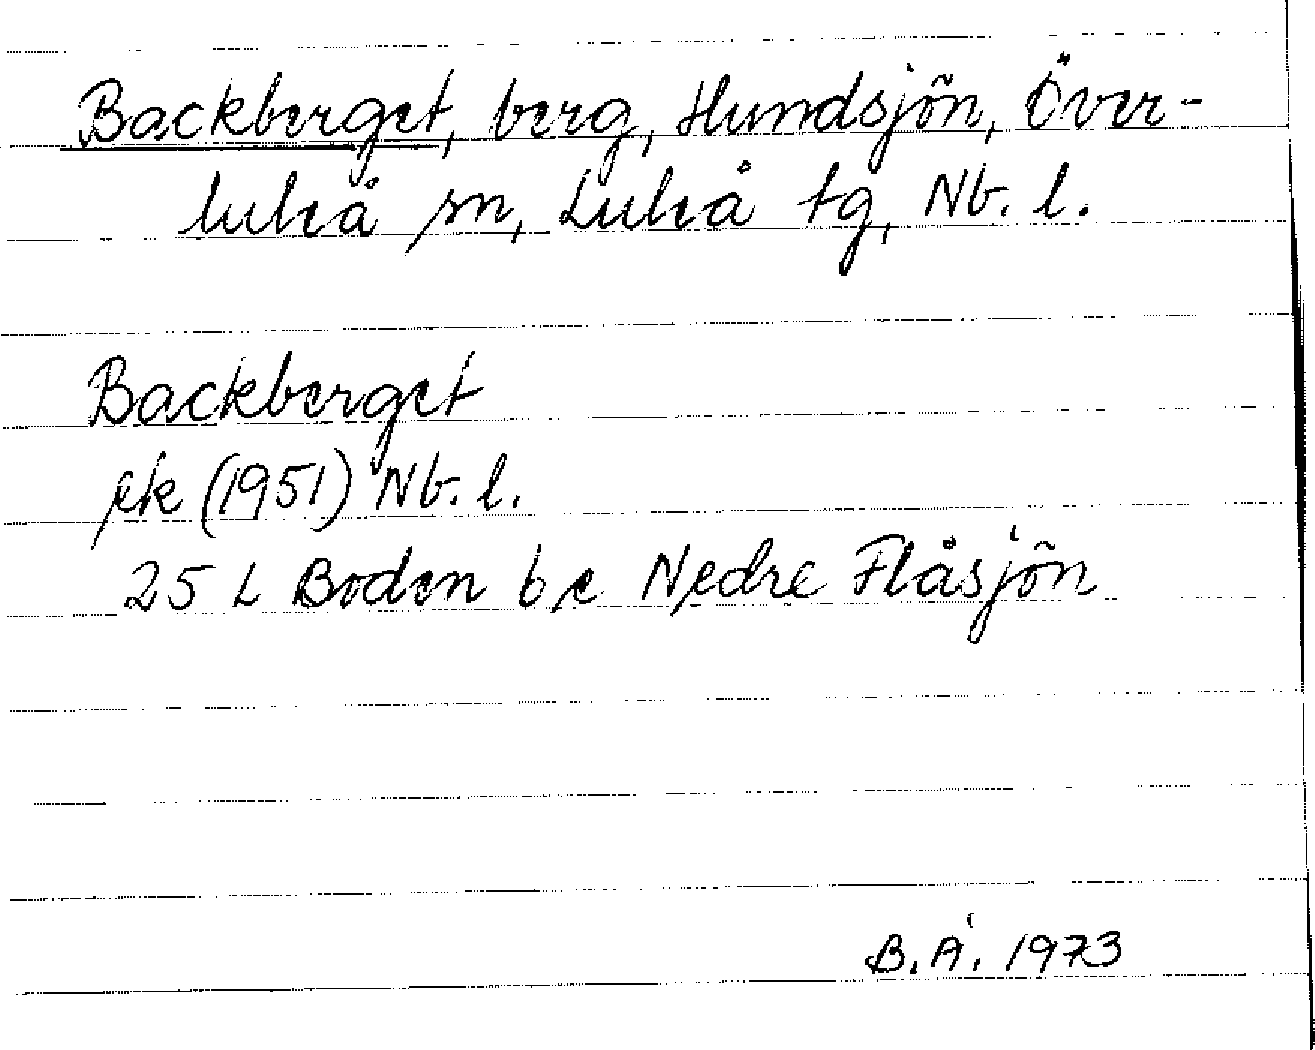 Backberget, berg, Hundsjön, Över-
luleå sn, Luleå tg, Nb. l.
Backberget
ek (1951) Nb. l.
25 L Boden b e Nedre Flåsjön
B.Å. 1973